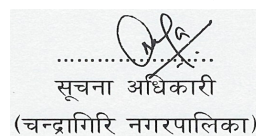 सूचना अधिकारी
(चन्द्रागिरि नगरपालिका)